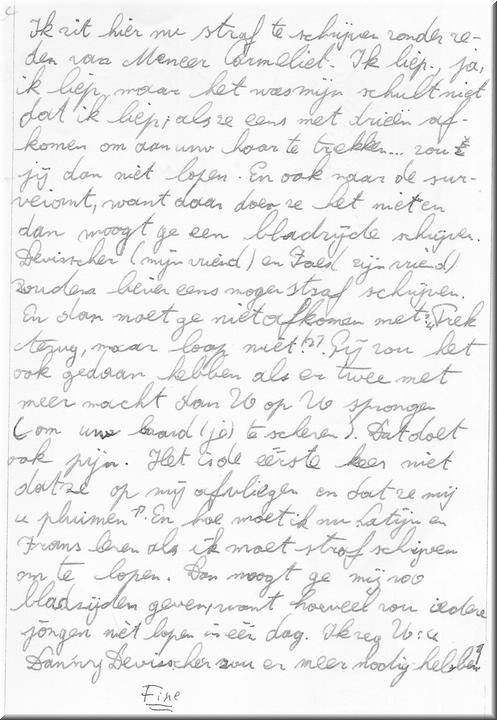 Ik zit hier nu straf te schrijven zonder re-
den van Meneer Carmeliet. Ik liep, ja,
ik liep, maar het was mijn schult niet
dat ik liep; als ze eens met drieën af-
komen om aan uw haar te trekken... zou
jij dan niet lopen. En ook naar de sur-
veiomt, want daar doen ze het niet en
dan moogt ge een bladzijde schrijven.
Devisscher (mijn vriend) en Faes (zijn vriend)
zouden liever eens mogen straf schrijven.
En dan moet ge niet afkomen met: "Trek
terug, maar loop niet!"? Gij zou het
ook gedaan hebben als er twee met
meer macht dan U op U sprongen
(om uw baard(je) te scheren). Dat doet
ook pijn. Het is de eerste keer niet
dat ze op mij afvliegen en dat ze mij
"pluimen". En hoe moet ik nu Latijn en
Frans leren als ik moet straf schrijven
om te lopen. Dan moogt ge mij 100
bladzijden geven, want hoeveel zou iedere
jongen niet lopen in één dag. Ik zeg U: "
Danny Devisscher zou er meer nodig hebben!"
Fine